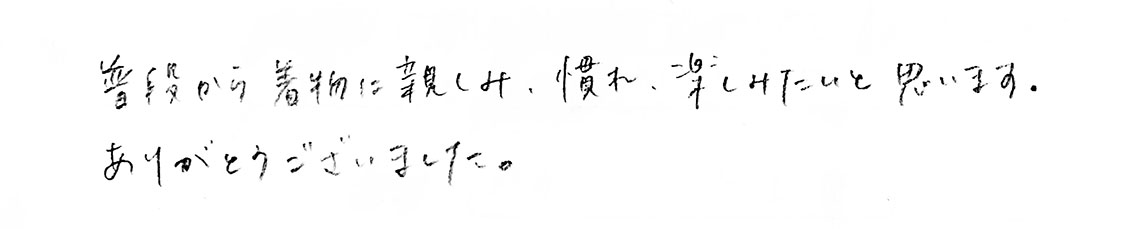 普段から着物に親しみ、慣れ、楽しみたいと思います。
ありがとうございました。